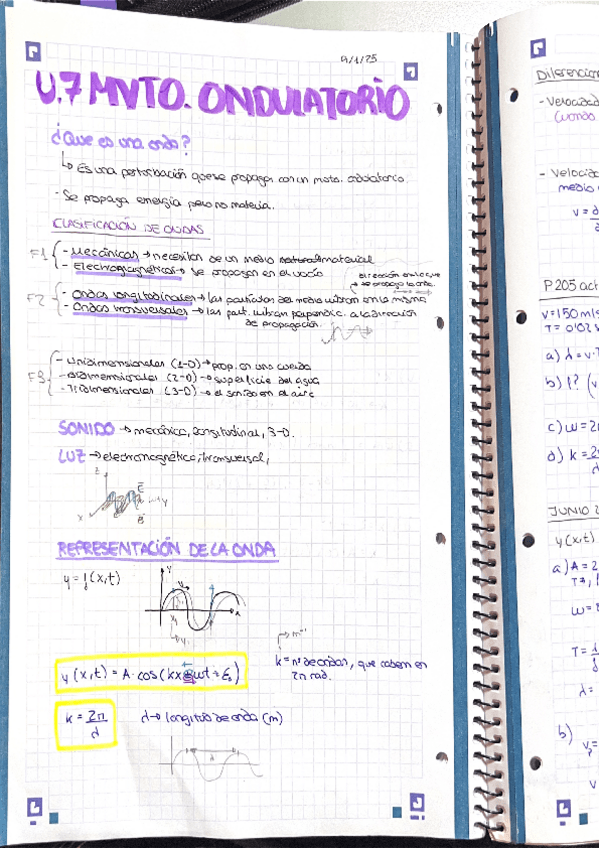 9/1/25
U.7 MVTO. ONDULATORIO
¿Que es una onda?
↳ Es una perturbación que se propaga con un moto. ondulatorio.
- Se propaga energía pero no materia.
CLASIFICACIÓN DE ONDAS
F1 - Mecánicas → necesitan de un medio material
- Electromagnéticas → se propagan en el vacío
dirección en la que
se propaga la onda.
F2 - Ondas longitudinales → las partículas del medio vibran en la misma
- Ondas transversales → las part. vibran perpendic. a la dirección
de propagación.
- Unidimensionales (1-D) → prop. en una cuerda
F3 - Bidimensionales (2-D) → superficie del agua
- Tridimensionales (3-D) → el sonido en el aire
SONIDO → mecánica, longitudinal, 3-D.
LUZ → electromagnética, transversal,
z
E
y
x
B
REPRESENTACIÓN DE LA ONDA
y = f(x,t)
y
x
→ m⁻¹
k = nº de ondas, que caben en
2π rad.
y(x,t) = A · cos(kx ± ωt + ξ₀)
k = 2π/λ
λ → longitud de onda (m)
λ
Diferencian
- Velocidad
(cuando
- Velocidad
medio
v = d
P205 act
v = 150 m/s
T = 0'02
a) λ = v·
b) f? (v
c) ω = 2
d) k = 2
λ
JUNIO 2
y(x,t)
a) A = 2
ω =
T =
λ =
b)
v